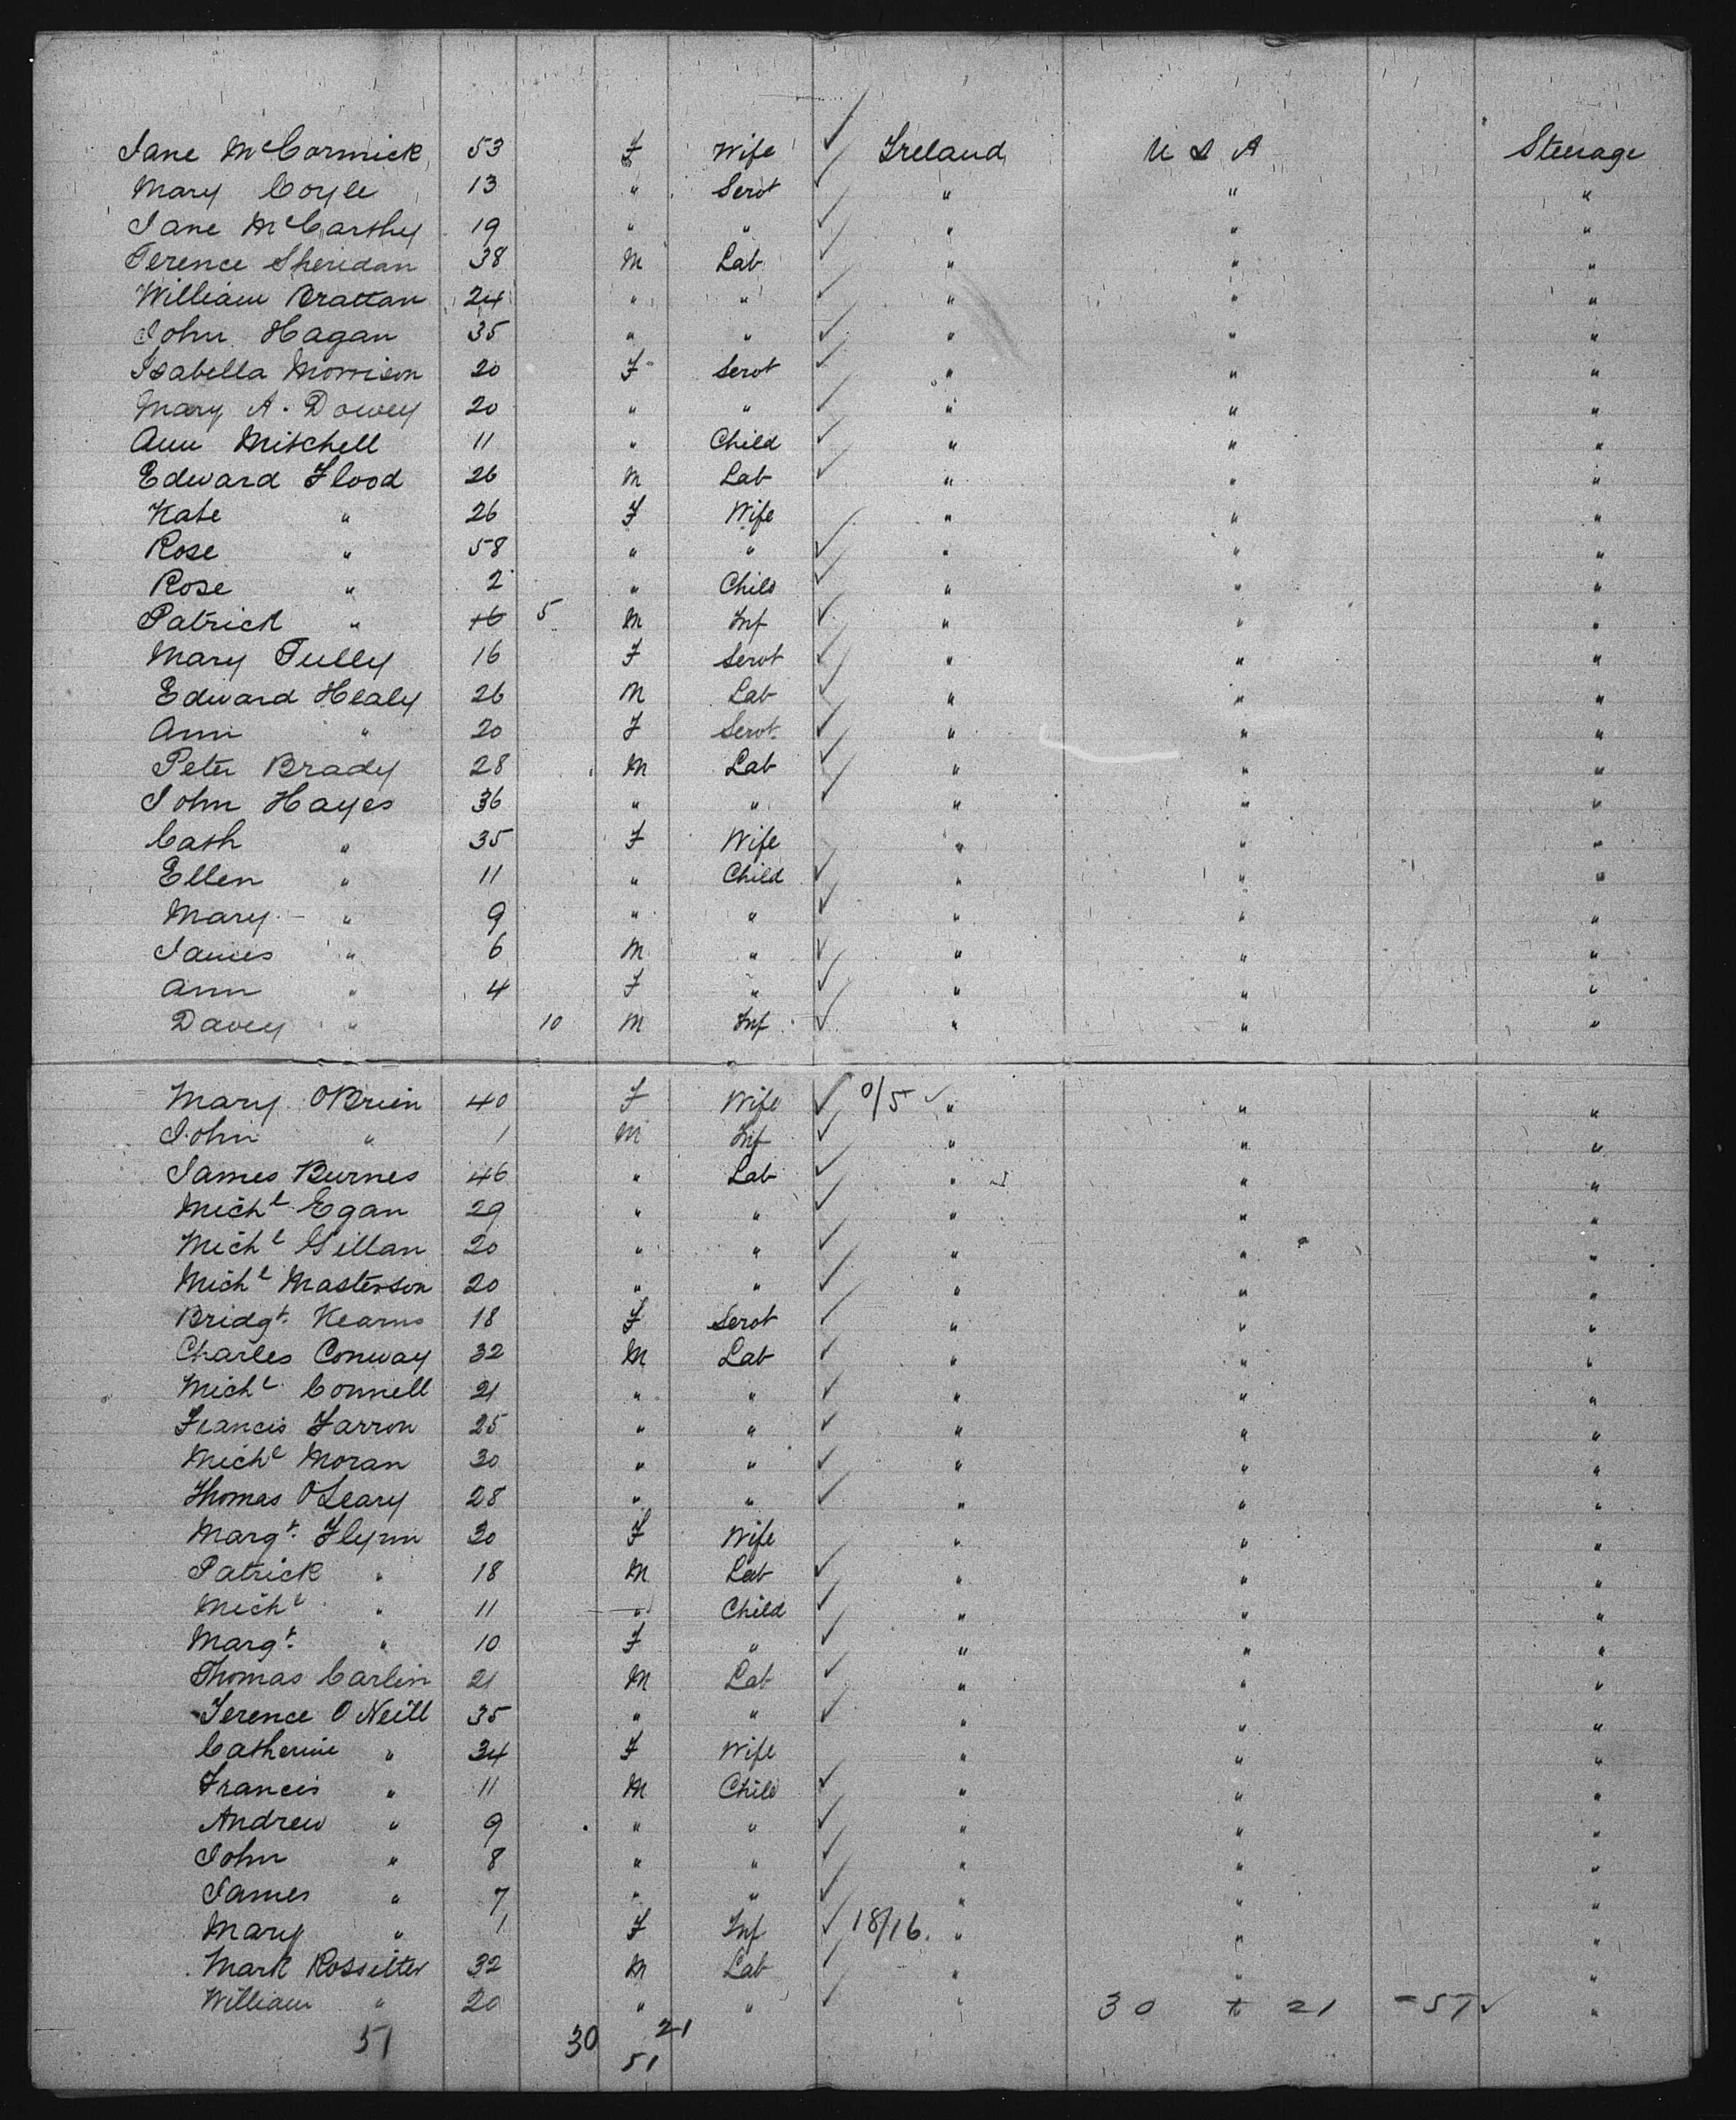 Jane McCormick 53 F Wife ✓ Ireland U S A Steerage
Mary Coyle 13 " Servt ✓ " " "
Jane McCarthy 19 " " ✓ " " "
Terence Sheridan 38 M Lab ✓ " " "
William Brattan 24 " " ✓ " " "
John Hagan 35 " " ✓ " " "
Isabella Morrison 20 F Servt ✓ " " "
Mary A. Dowey 20 " " ✓ " " "
Ann Mitchell 11 " Child ✓ " " "
Edward Flood 26 M Lab ✓ " " "
Kate " 26 F Wife " " "
Rose " 58 " " ✓ " " "
Rose " 2 " Child ✓ " " "
Patrick " 5 M Inf ✓ " " "
Mary Tully 16 F Servt ✓ " " "
Edward Healy 26 M Lab ✓ " " "
Ann " 20 F Servt ✓ " " "
Peter Brady 28 M Lab ✓ " " "
John Hayes 36 " " ✓ " " "
Cath " 35 F Wife " " "
Ellen " 11 " Child ✓ " " "
Mary " 9 " " ✓ " " "
James " 6 M " ✓ " " "
Ann " 4 F " ✓ " " "
Davey " 10 M Inf ✓ " " "
Mary OBrien 40 F Wife ✓ 0/5 ✓ " " "
John " 1 M Inf ✓ " " "
James Burnes 46 " Lab ✓ " " "
Michl Egan 29 " " ✓ " " "
Michl Gillan 20 " " ✓ " " "
Michl Masterson 20 " " ✓ " " "
Bridgt. Kearns 18 F Servt ✓ " " "
Charles Conway 32 M Lab ✓ " " "
Michl Connell 21 " " ✓ " " "
Francis Farron 25 " " ✓ " " "
Michl Moran 30 " " ✓ " " "
Thomas OLeary 28 " " ✓ " " "
Margt. Flynn 30 F Wife " " "
Patrick " 18 M Lab ✓ " " "
Michl " 11 " Child ✓ " " "
Margt. " 10 F " ✓ " " "
Thomas Carlin 21 M Lab ✓ " " "
Terence O Neill 35 " " ✓ " " "
Catherine " 34 F Wife " " "
Francis " 11 M Child ✓ " " "
Andrew " 9 " " ✓ " " "
John " 8 " " ✓ " " "
James " 7 " " ✓ " " "
Mary " 1 F Inf ✓ 18/16. " " "
Mark Rossitter 32 M Lab ✓ " " "
William " 20 " " ✓ " 30 + 21 = 51 ✓ "
51 30 21
51